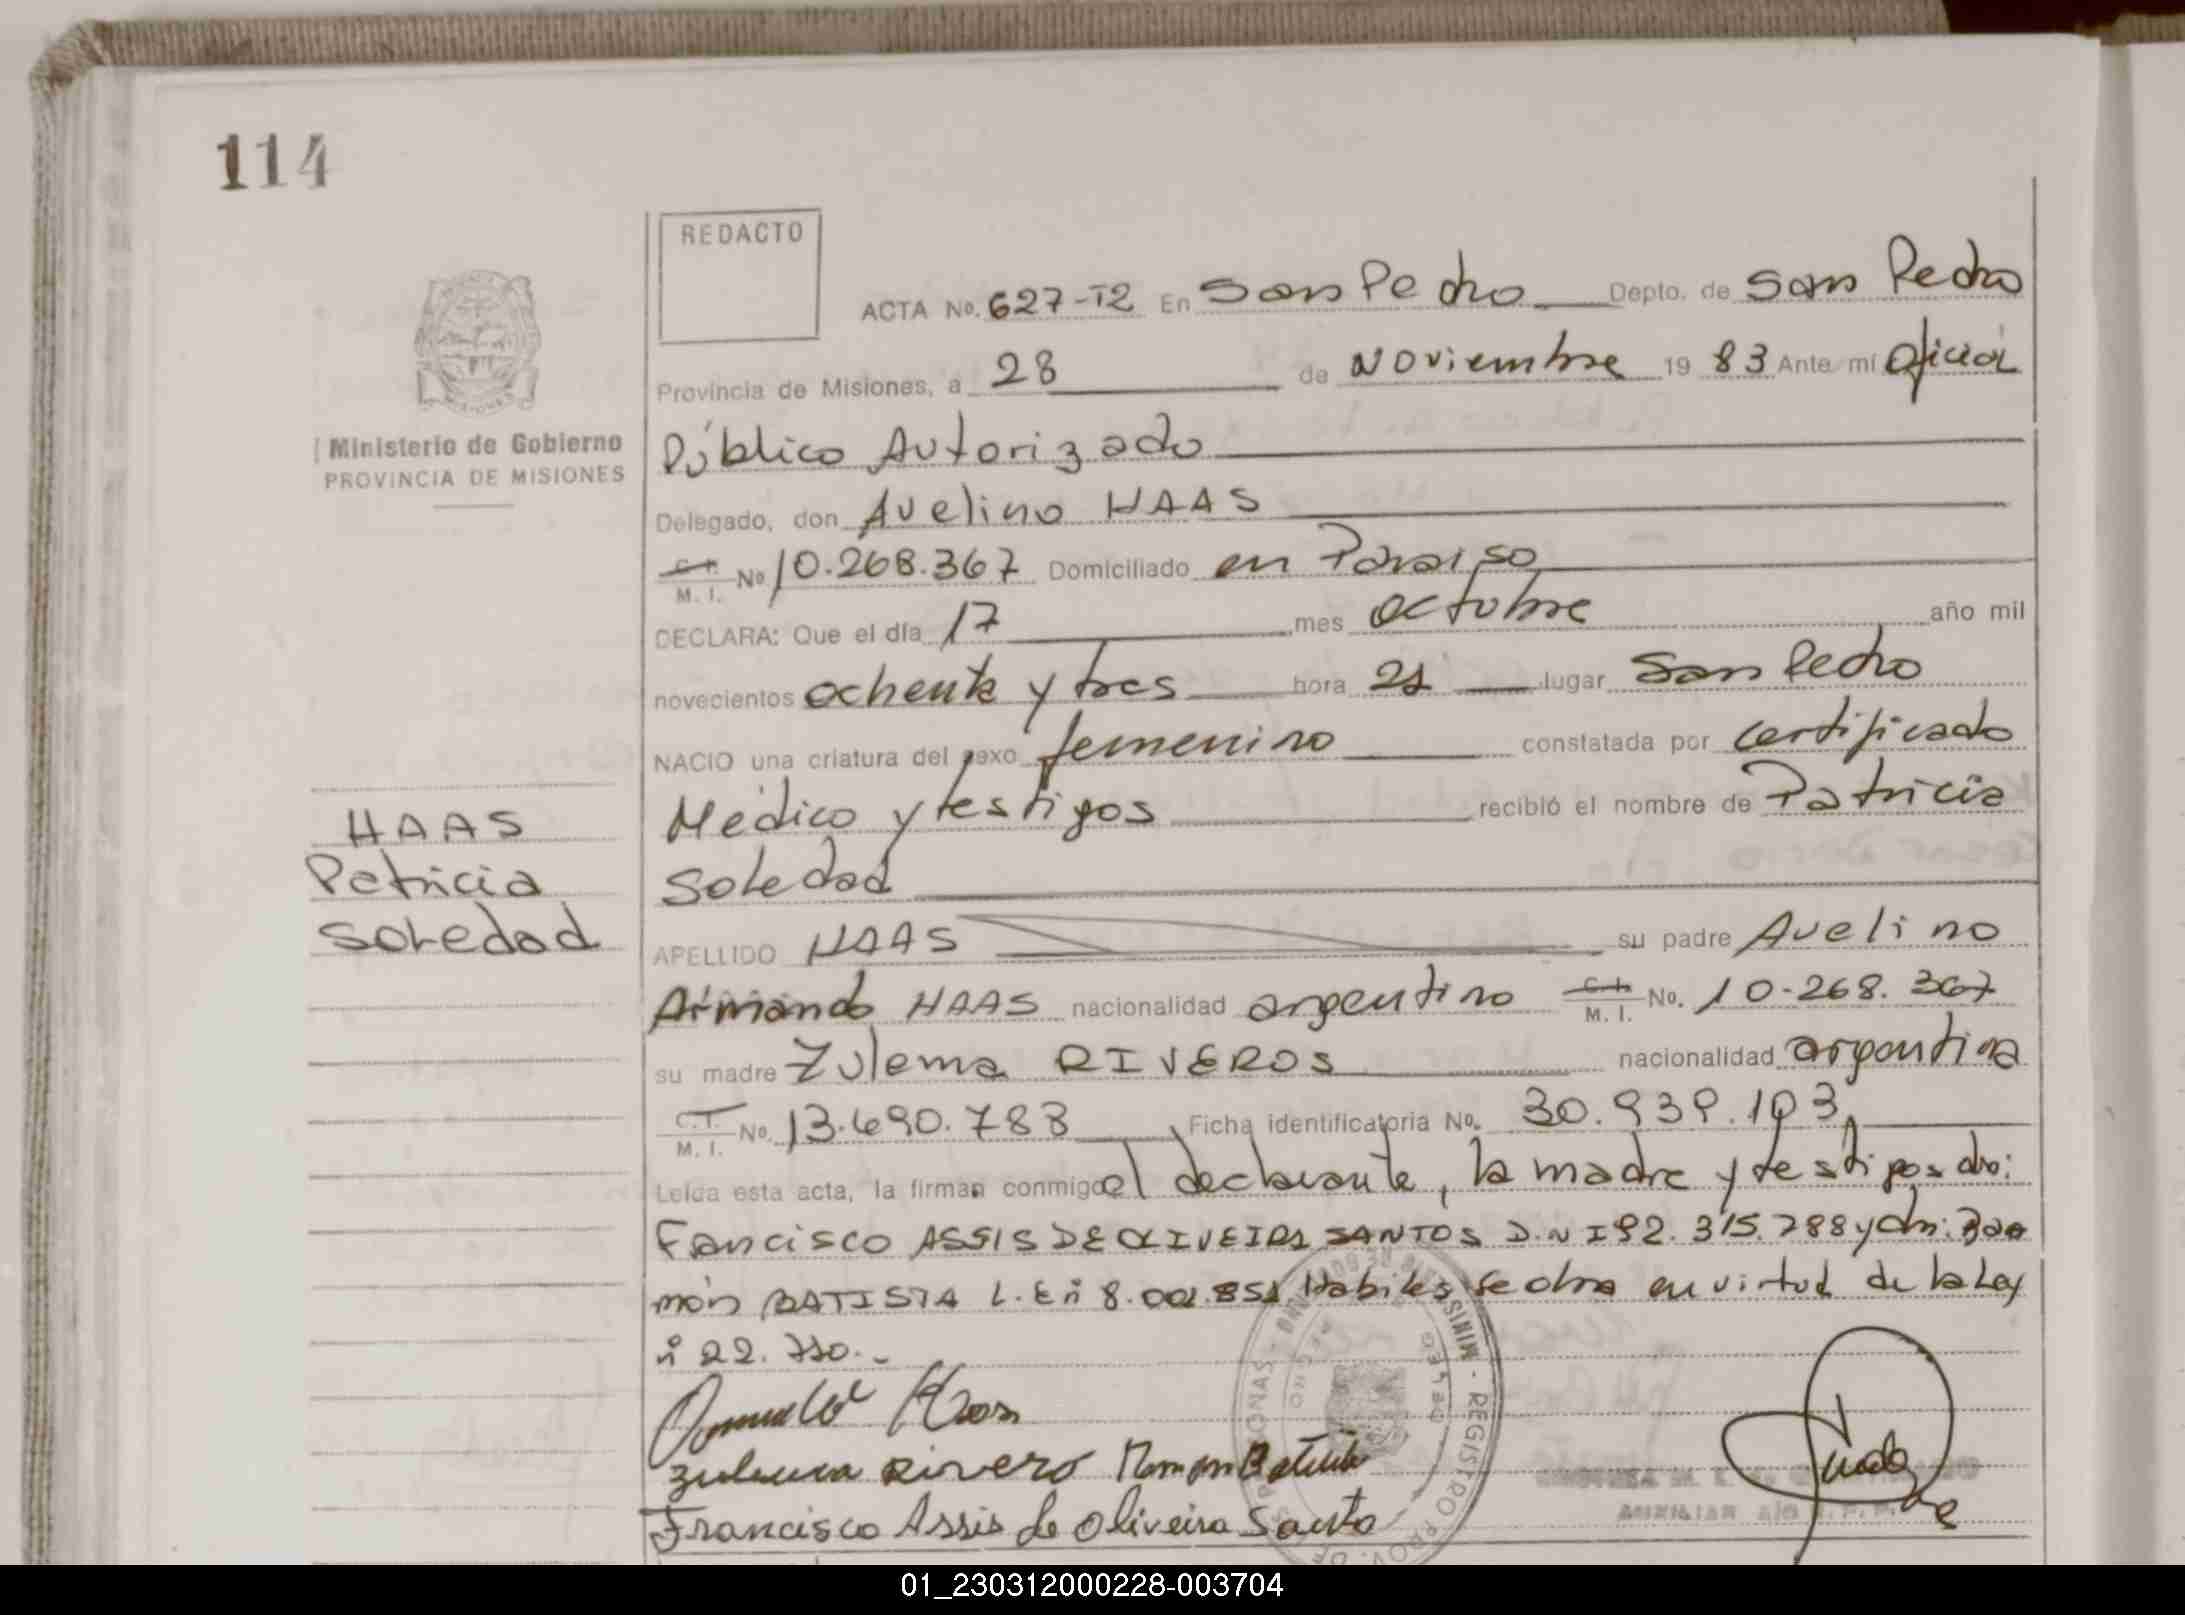 114
REDACTO
ACTA No. 627-T2 En San Pedro Depto. de San Pedro
Provincia de Misiones, a 28 de Noviembre 19 83 Ante mí Oficial
Ministerio de Gobierno
PROVINCIA DE MISIONES
Público Autorizado
Delegado, don Avelino HAAS
C.I. M. I. No 10.268.367 Domiciliado en Paraiso
DECLARA: Que el día 17 mes octubre año mil
novecientos ochenta y tres hora 21 lugar San Pedro
NACIO una criatura del sexo femenino constatada por certificado
Médico y testigos recibió el nombre de Patricia
Soledad
HAAS
Patricia
Soledad
APELLIDO HAAS su padre Avelino
Armando HAAS nacionalidad argentino C.I. M. I. No. 10-268.367
su madre Zulema RIVEROS nacionalidad argentina
C.I. M. I. No. 13.690.788 Ficha identificatoria No. 30.939.103
Leída esta acta, la firman conmigo el declarante, la madre y testigos dn:
Francisco ASSIS DE OLIVEIRA SANTOS D.N I 92.315.788 y dn: Ra
món BATISTA L.E n° 8.001.851 Habiles se obra en virtud de la Ley
n° 22.770.-
Haas
Zulema Rivero Ramon Batista
Francisco Assis de Oliveira Santo
MINIS - REGISTRO PROV. DE PERSONAS
AUXILIAR
01_230312000228-003704